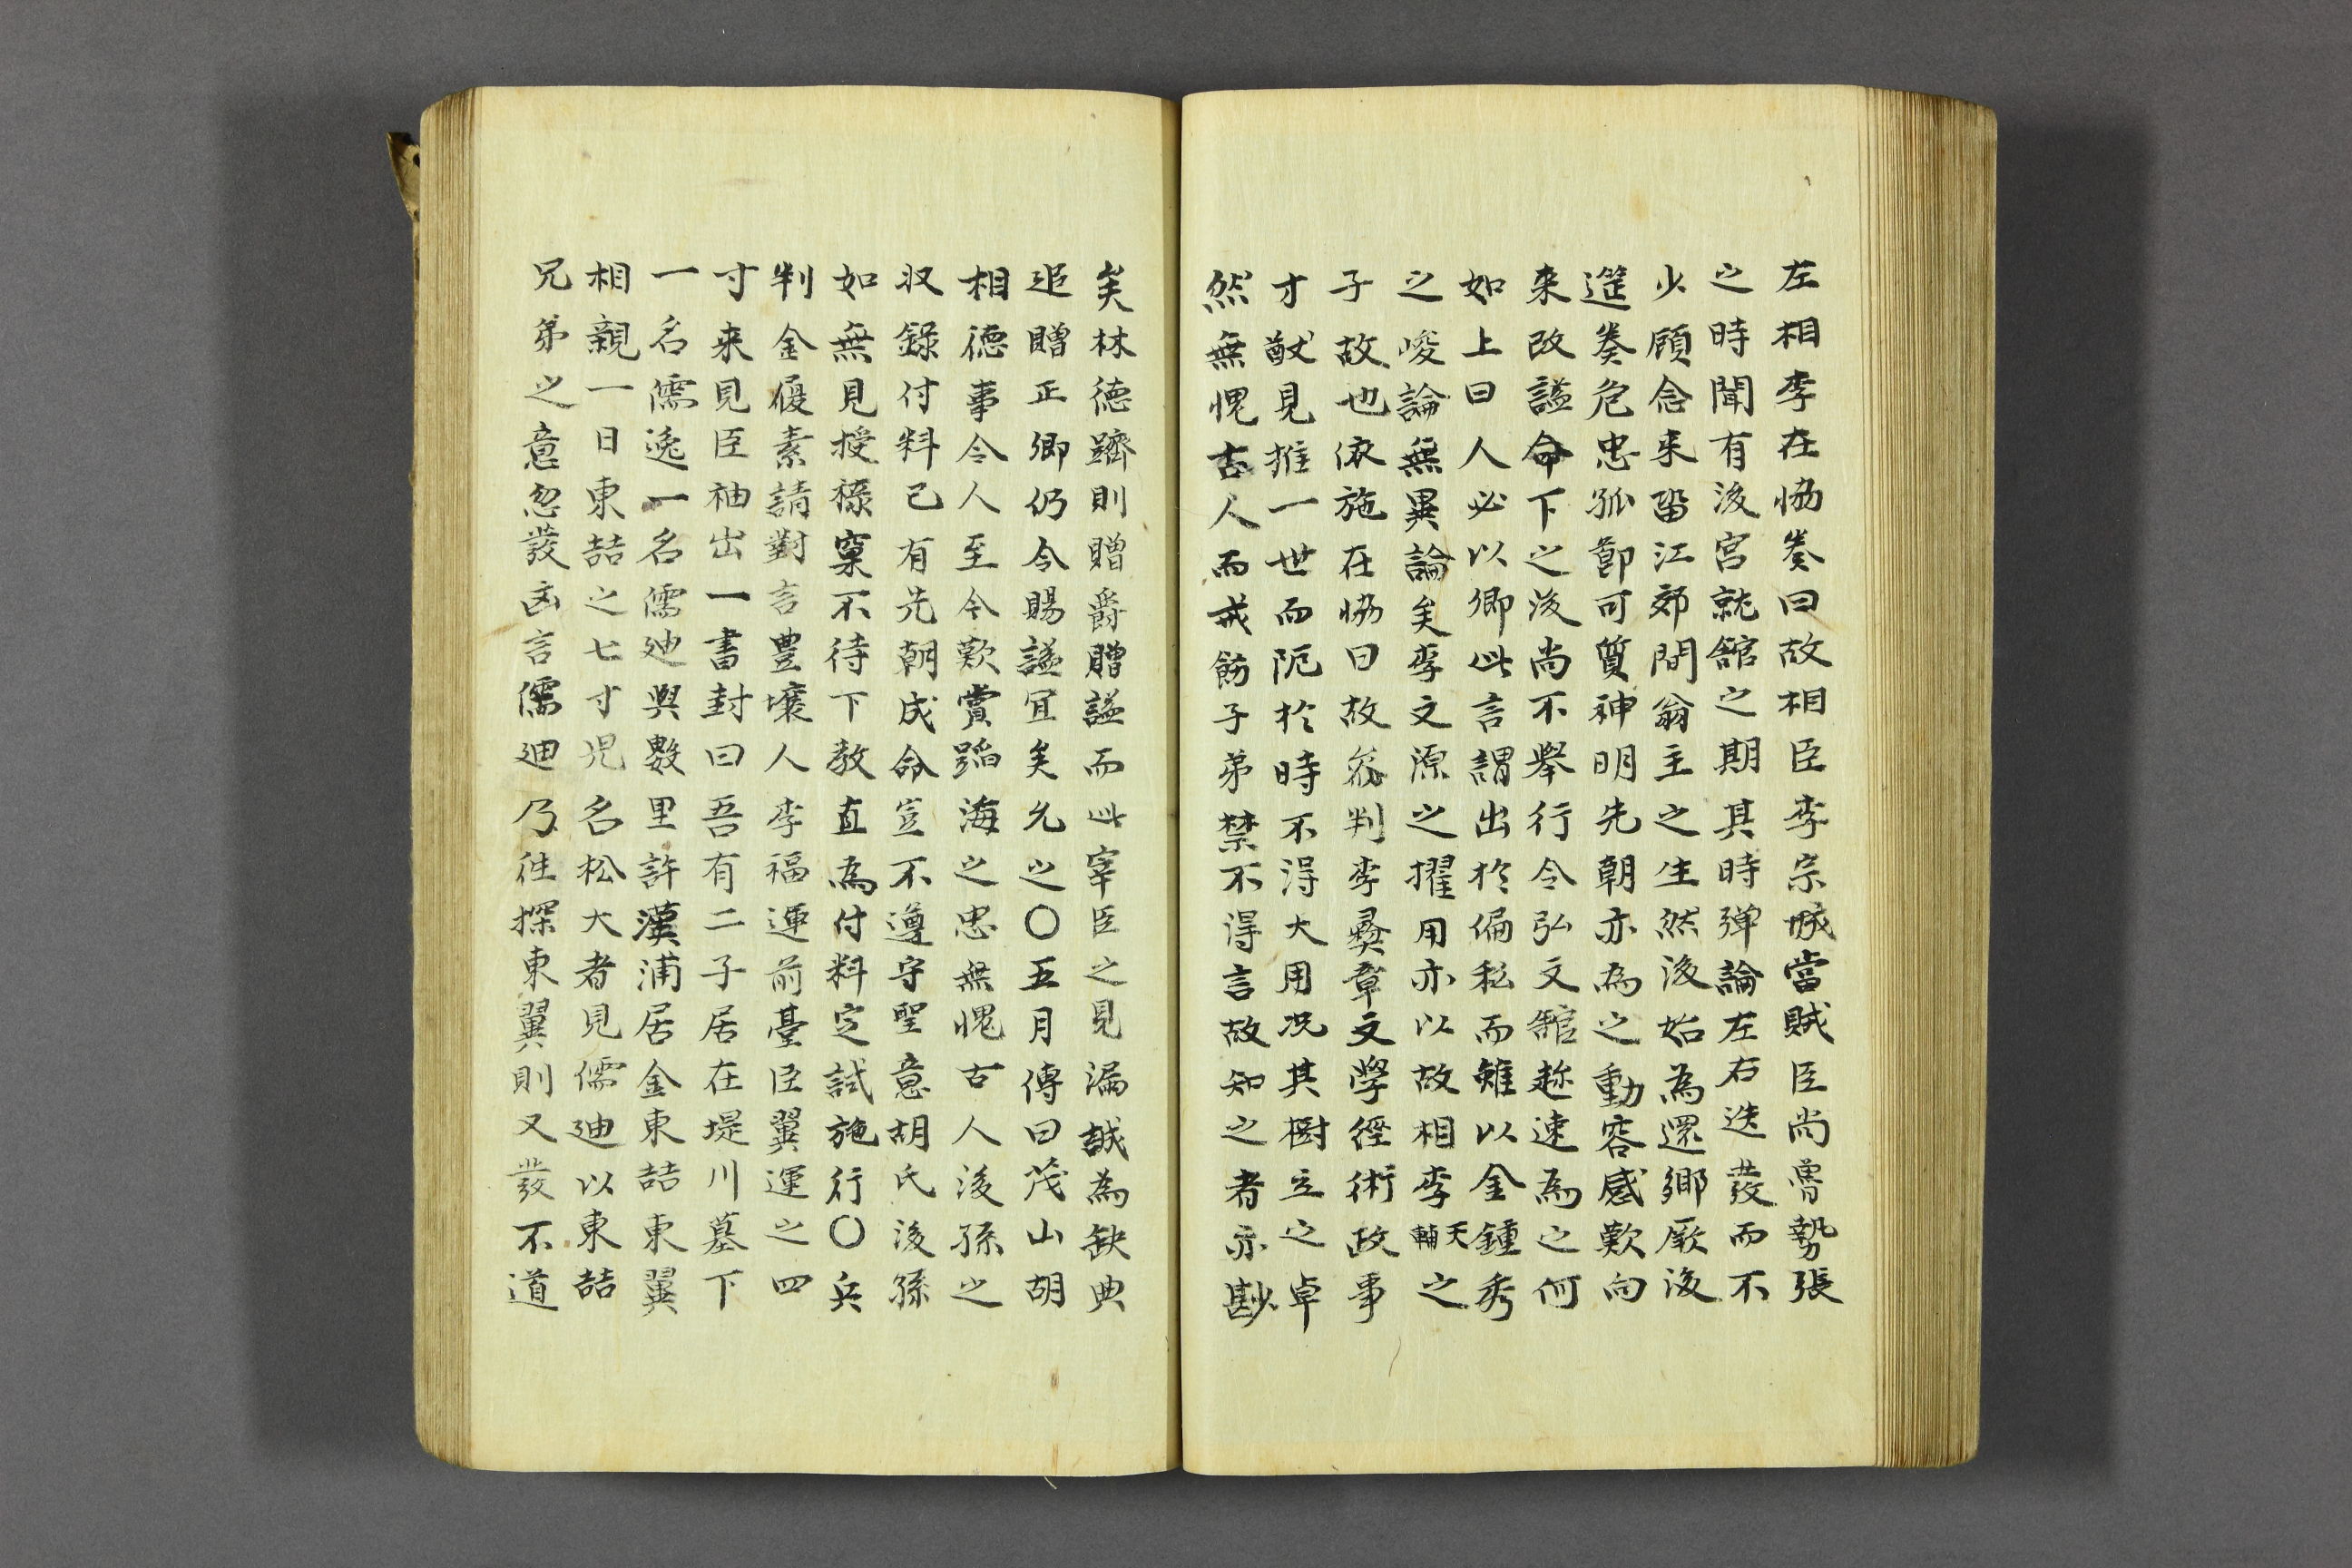 左相李在協奏曰故相臣李宗城當賊臣尚魯勢張
之時聞有後宮就舘之期其時弹論左右迭發而不
少顧念来畱江郊間翁主之生然後始為還鄉厥後
進奏危忠孤節可質神明先朝亦為之動容感歎向
来改諡命下之後尚不舉行令弘文舘趂速為之何
如上曰人必以卿此言謂出於偏私而雖以金鍾秀
之峻論無異論矣李文源之擢用亦以故相李天輔之
子故也依施在協曰故叅判李彛章文學經術政事
才猷見推一世而阨於時不得大用况其樹立之卓
然無愧古人而戒飭子弟禁不得言故知之者亦尠
矣林德躋則贈爵贈諡而此宰臣之見漏誠為缺典
追贈正卿仍令賜諡宜矣允之〇五月傳曰茂山胡
相德事令人至今歎賞蹈海之忠無愧古人後孫之
収錄付料已有先朝成命豈不遵守聖意胡氏後孫
如無見授祿窠不待下教直為付料定試施行〇兵
判金履素請對言豊壤人李福運前臺臣翼運之四
寸来見臣袖出一書封曰吾有二子居在堤川墓下
一名儒逸一名儒廸與數里許漢浦居金東喆東翼
相親一日東喆之七寸児名松大者見儒廸以東喆
兄弟之意忽發凶言儒廸乃徃探東翼則又發不道